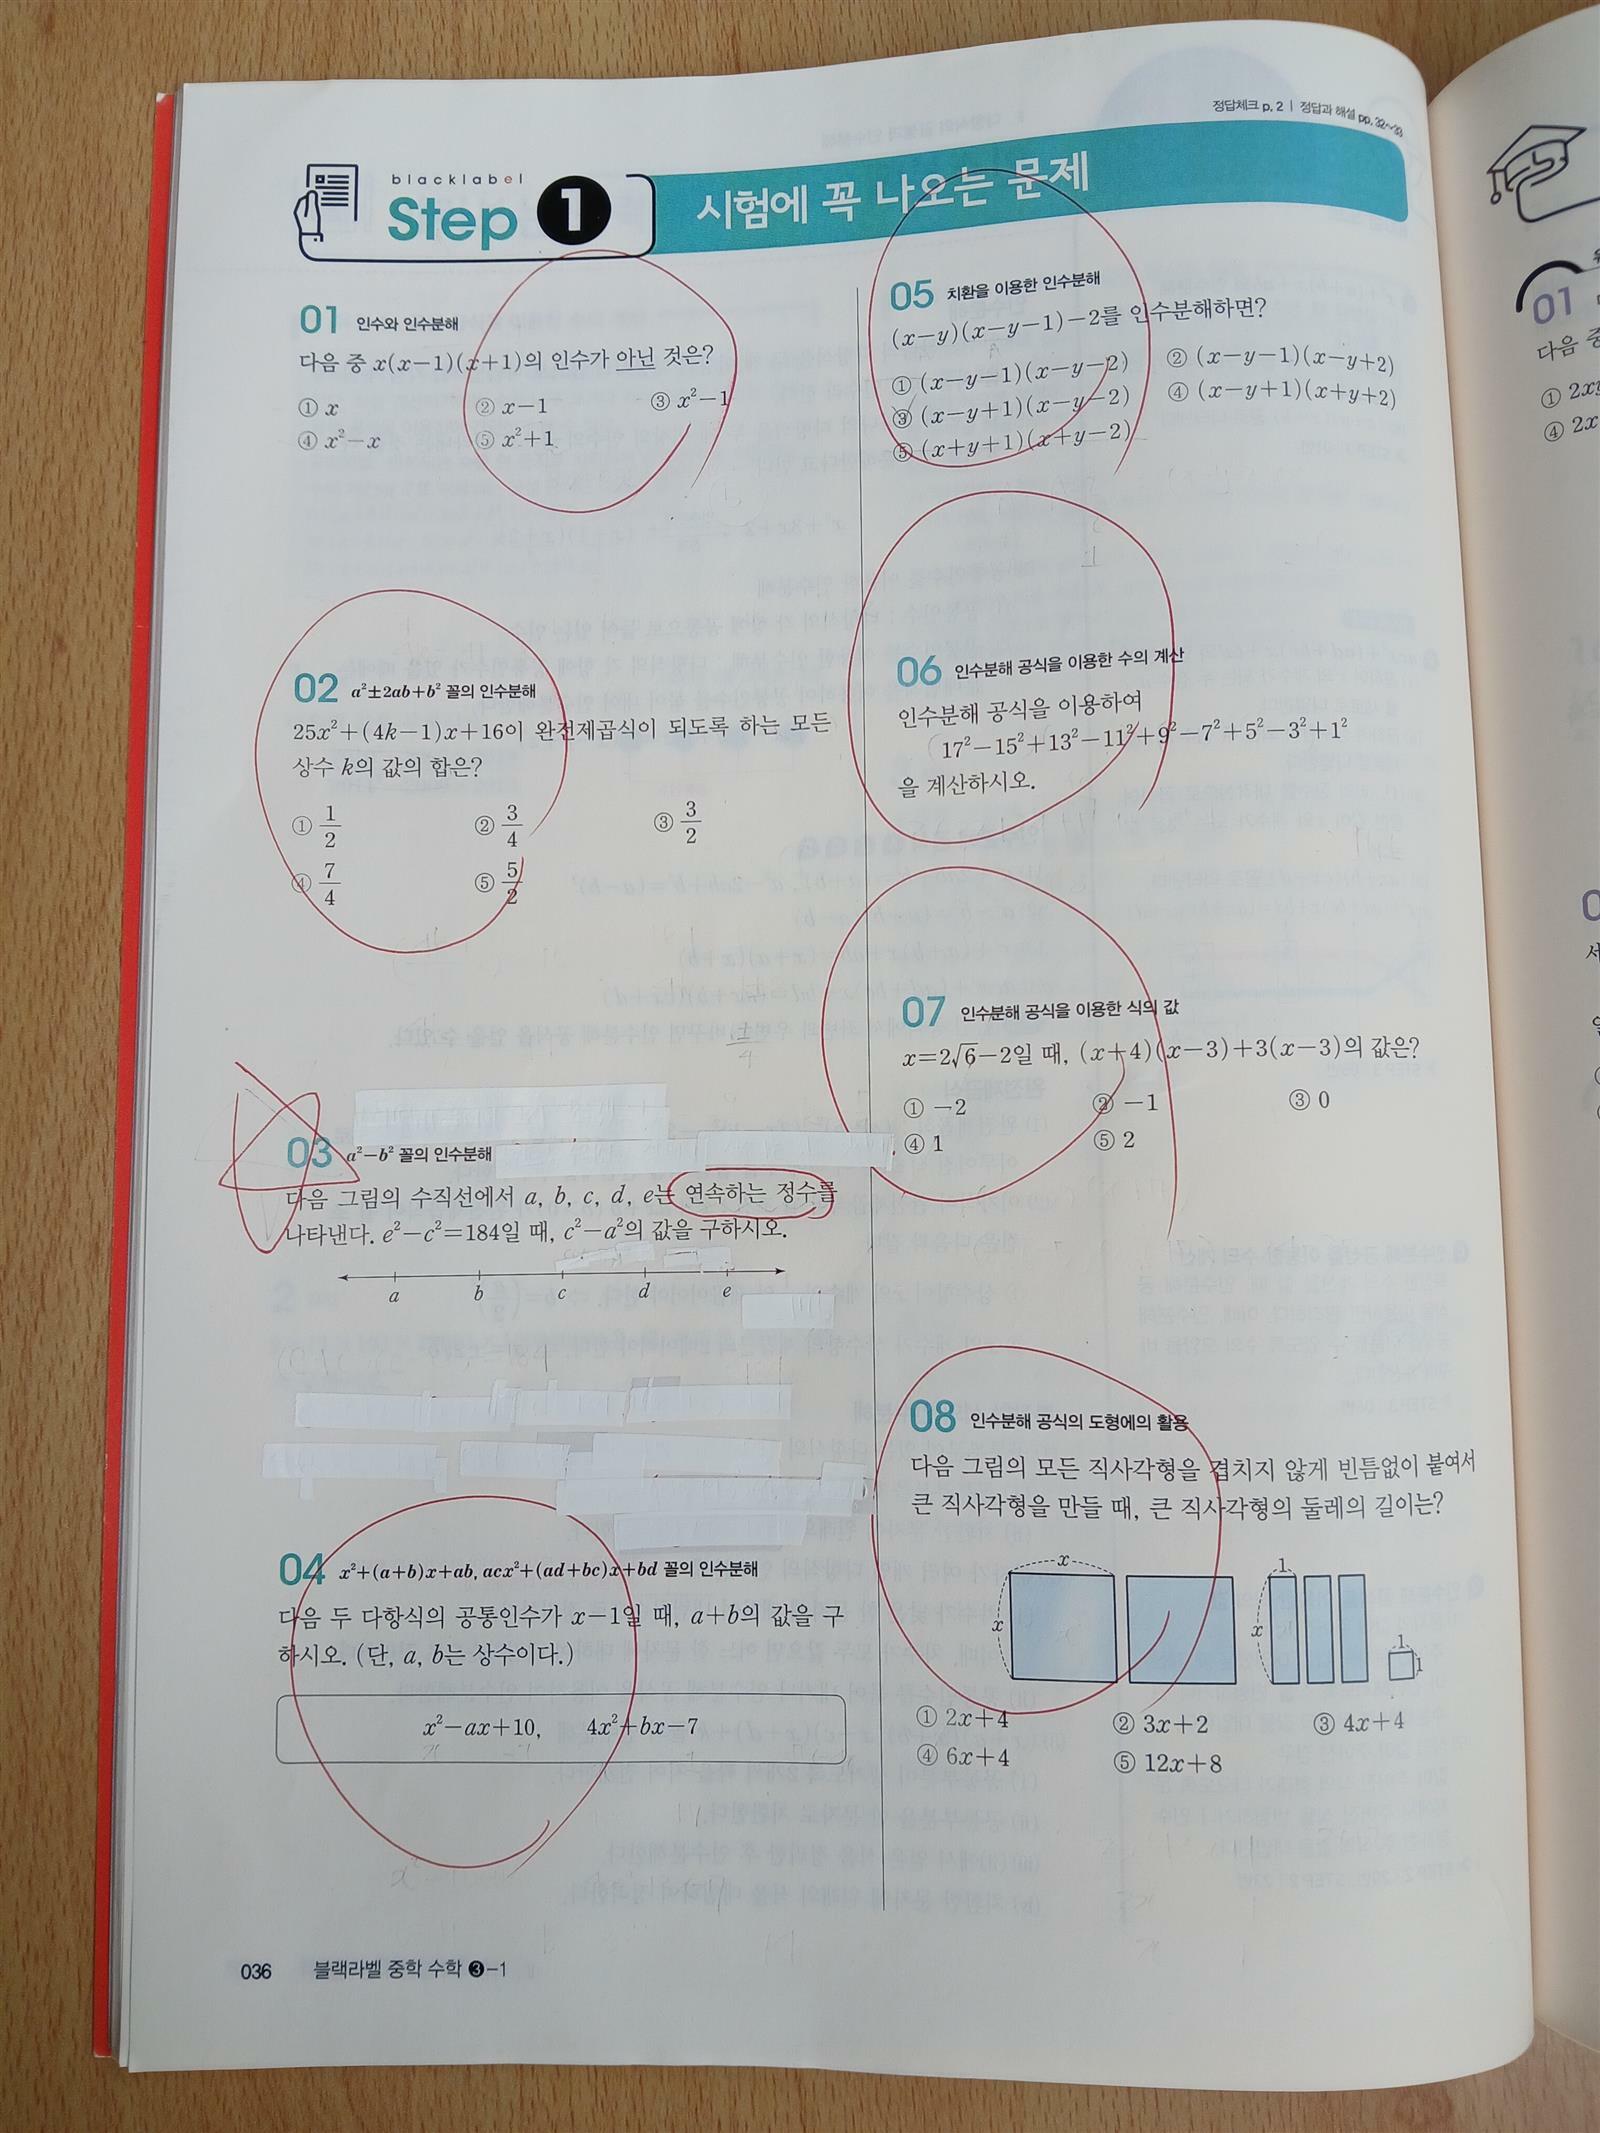 정답체크 p. 2 | 정답과 해설 pp. 32~33
blacklabel
Step 1
시험에 꼭 나오는 문제
01 인수와 인수분해
다음 중 x(x-1)(x+1)의 인수가 아닌 것은?
① x ② x-1 ③ x²-1
④ x²-x ⑤ x²+1
02 a²±2ab+b² 꼴의 인수분해
25x²+(4k-1)x+16이 완전제곱식이 되도록 하는 모든
상수 k의 값의 합은?
① 1/2 ② 3/4 ③ 3/2
④ 7/4 ⑤ 5/2
03 a²-b² 꼴의 인수분해
다음 그림의 수직선에서 a, b, c, d, e는 연속하는 정수를
나타낸다. e²-c²=184일 때, c²-a²의 값을 구하시오.
a b c d e
04 x²+(a+b)x+ab, acx²+(ad+bc)x+bd 꼴의 인수분해
다음 두 다항식의 공통인수가 x-1일 때, a+b의 값을 구
하시오. (단, a, b는 상수이다.)
x²-ax+10, 4x²+bx-7
05 치환을 이용한 인수분해
(x-y)(x-y-1)-2를 인수분해하면?
① (x-y-1)(x-y-2) ② (x-y-1)(x-y+2)
③ (x-y+1)(x-y-2) ④ (x-y+1)(x+y+2)
⑤ (x+y+1)(x+y-2)
06 인수분해 공식을 이용한 수의 계산
인수분해 공식을 이용하여
17²-15²+13²-11²+9²-7²+5²-3²+1²
을 계산하시오.
07 인수분해 공식을 이용한 식의 값
x=2√6-2일 때, (x+4)(x-3)+3(x-3)의 값은?
① -2 ② -1 ③ 0
④ 1 ⑤ 2
08 인수분해 공식의 도형에의 활용
다음 그림의 모든 직사각형을 겹치지 않게 빈틈없이 붙여서
큰 직사각형을 만들 때, 큰 직사각형의 둘레의 길이는?
x x 1 x 1 1
① 2x+4 ② 3x+2 ③ 4x+4
④ 6x+4 ⑤ 12x+8
036 블랙라벨 중학 수학 ❸-1
01
다음 중
① 2xy
④ 2x